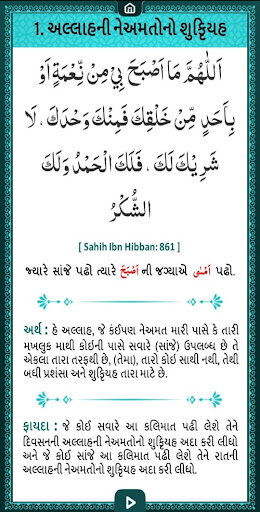 1. અલ્લાહની નેઅમતોનો શુક્રિયહ
اَللّٰهُمَّ مَا اَصْبَحَ بِيْ مِنْ نِّعْمَةٍ اَوْ
بِاَحَدٍ مِّنْ خَلْقِكَ فَمِنْكَ وَحْدَكَ ، لَا
شَرِيْكَ لَكَ ، فَلَكَ الْحَمْدُ وَلَكَ
الشُّكْرُ
[ Sahih Ibn Hibban: 861 ]
જ્યારે સાંજે પઢો ત્યારે اَصْبَحَ ની જગ્યાએ اَمْسٰى પઢો.
અર્થ : હે અલ્લાહ, જે કંઈપણ નેઅમત મારી પાસે કે તારી
મખલુક માથી કોઈની પાસે સવારે (સાંજે) ઉપલબ્ધ છે તે
એકલા તારા તરફથી છે, (તેમા), તારો કોઇ સાથી નથી, તેથી
બધી પ્રશંસા અને શુક્રિયહ તારા માટે છે.
ફાયદા : જે કોઈ સવારે આ કલિમાત પઢી લેશે તેને
દિવસનની અલ્લાહની નેઅમતોનો શુક્રિયહ અદા કરી લીધો
અને જે કોઈ સાંજે આ કલિમાત પઢી લેશે તેને રાતની
અલ્લાહની નેઅમતોનો શુક્રિયહ અદા કરી લીધો.